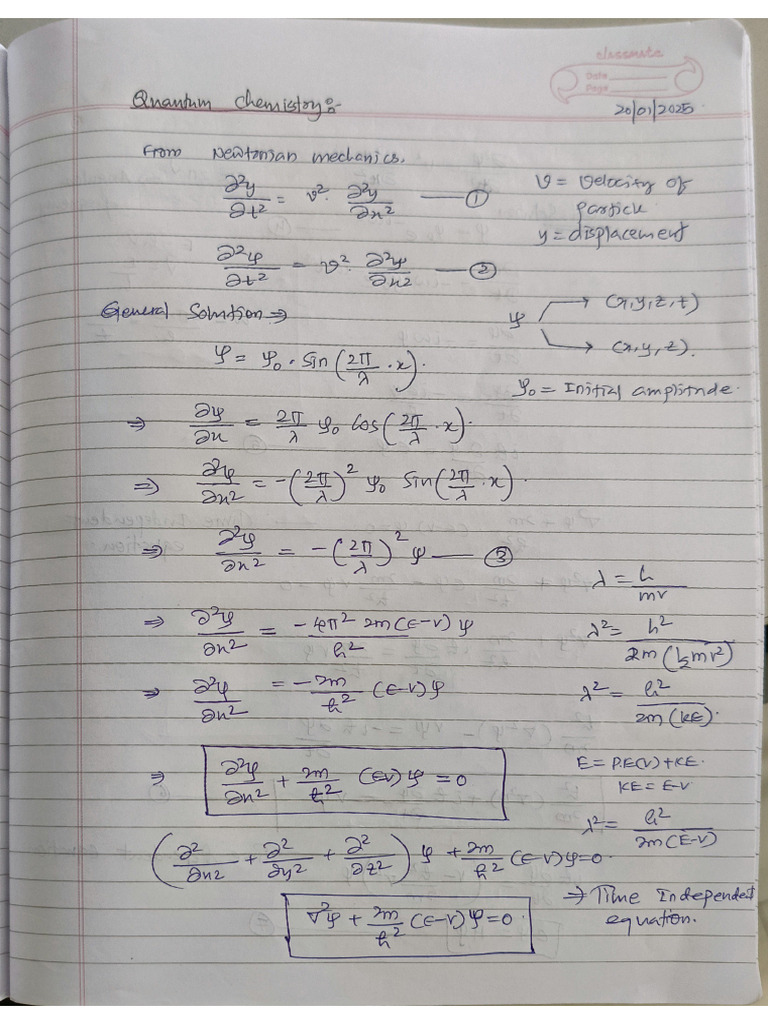 classmate
Date
Page
Quantum chemistry:-
20/01/2025.
From Newtonian mechanics.
∂²y/∂t² = v². ∂²y/∂x² —— ①
v = velocity of
particle
y = displacement
∂²ψ/∂t² = v². ∂²ψ/∂x² —— ②
General Solution ⇒
ψ → (x,y,z,t)
→ (x,y,z).
ψ = ψ₀ . Sin(2π/λ . x).
ψ₀ = Initial amplitude.
⇒ ∂ψ/∂x = 2π/λ ψ₀ Cos(2π/λ . x).
⇒ ∂²ψ/∂x² = -(2π/λ)² ψ₀ Sin(2π/λ . x).
⇒ ∂²ψ/∂x² = -(2π/λ)² ψ —— ③
λ = h/mv
⇒ ∂²ψ/∂x² = -4π² 2m(E-V)ψ/h²
λ² = h²/2m(½mv²)
⇒ ∂²ψ/∂x² = -2m/ħ² (E-V)ψ
λ² = h²/2m(KE).
E = P.E(V)+KE.
KE = E-V
⇒ ∂²ψ/∂x² + 2m/ħ² (E-V)ψ = 0
λ² = h²/2m(E-V)
(∂²/∂x² + ∂²/∂y² + ∂²/∂z²) ψ + 2m/ħ² (E-V)ψ = 0.
⇒ Time Independent
equation.
∇²ψ + 2m/ħ² (E-V)ψ = 0.